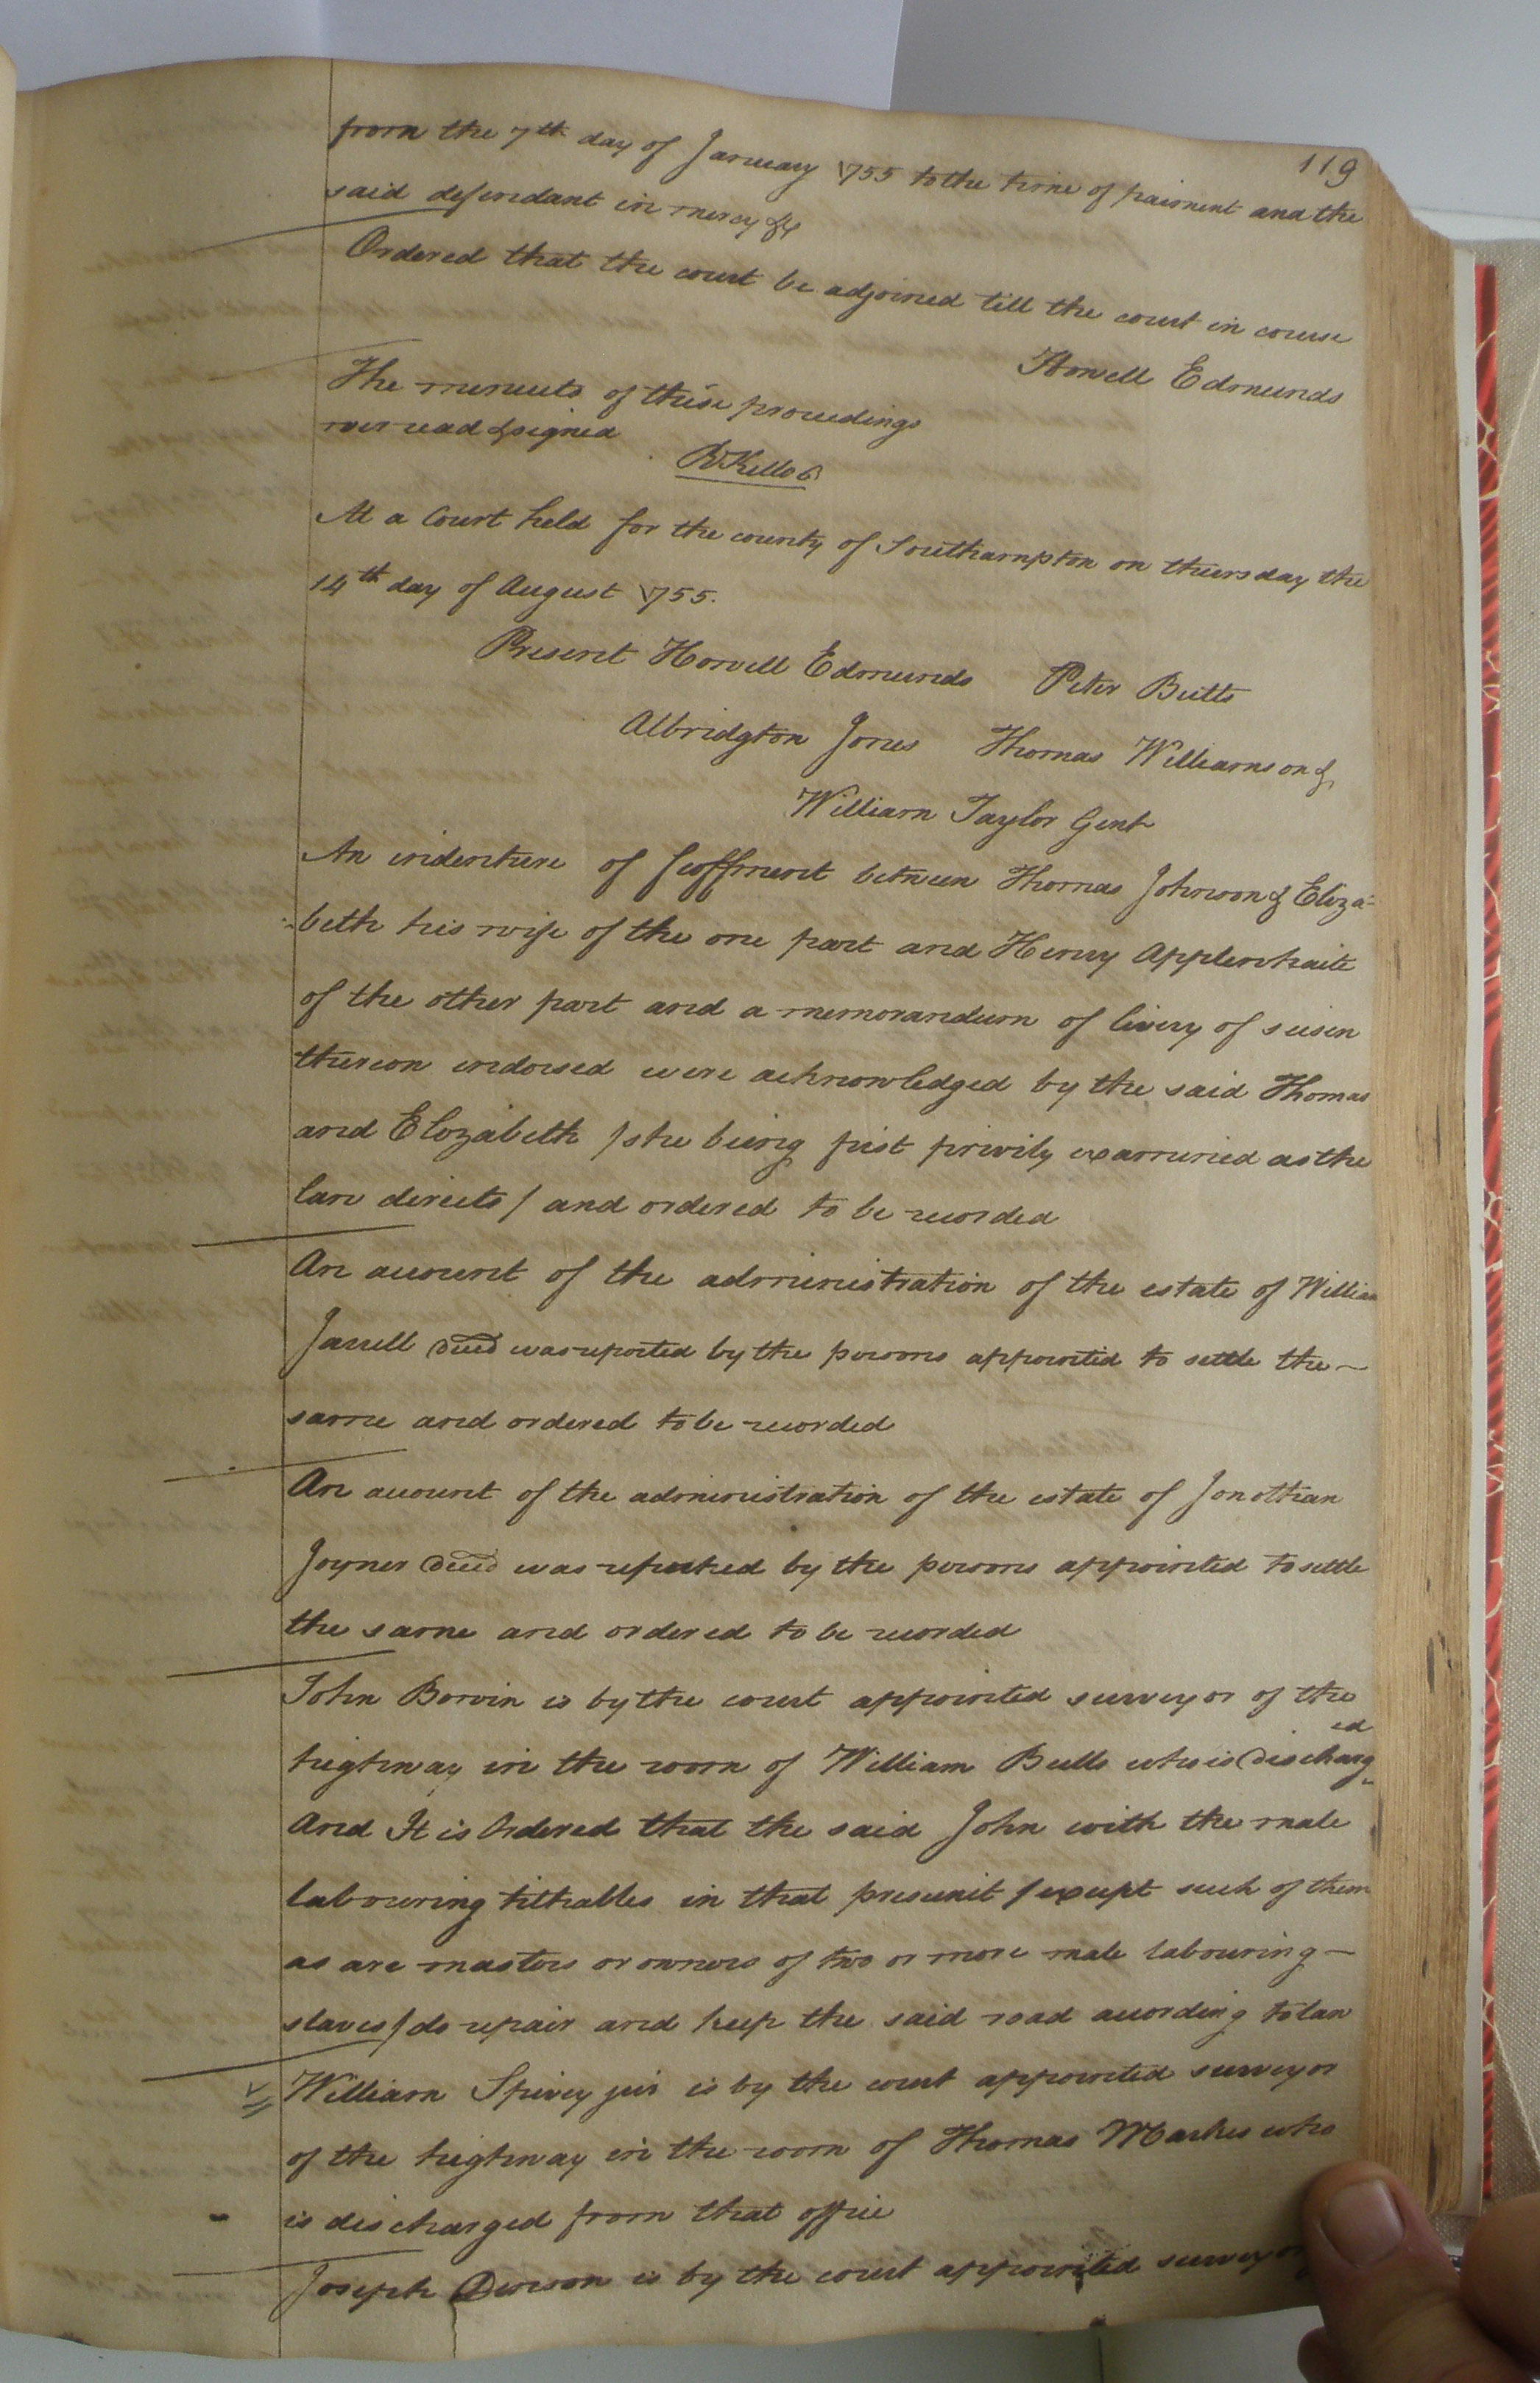 119
from the 7th day of January 1755 to the time of paiment and the
said defendant in mercy &c
Ordered that the court be adjoined till the court in course
Howell Edmunds
The minuets of these proceedings
were read & signed
R Kello C
At a Court held for the county of Southampton on thursday the
14th day of August 1755.
Present Howell Edmunds Peter Butts
Albridgton Jones Thomas Williamson &
William Taylor Gent
An indenture of feoffment between Thomas Johnson & Eliza=
=beth his wife of the one part and Henry Applewhaite
of the other part and a memorandum of livery of seisen
thereon indorsed were acknowledged by the said Thomas
and Elizabeth /she being first privily examined as the
law directs/ and ordered to be recorded
An account of the administration of the estate of William
Jarrell Deced was reported by the persons appointed to settle the
same and ordered to be recorded
An account of the administration of the estate of Jonothan
Joyner Deced was reported by the persons appointed to settle
the same and ordered to be recorded
John Bowin is by the court appointed surveyor of the
highway in the room of William Bulls who is discharged
And It is Ordered that the said John with the male
labouring tithables in that presinct /except such of them
as are masters or owners of two or more male labouring
slaves/ do repair and keep the said road according to law
William Spivey junr is by the court appointed surveyor
of the highway in the room of Thomas Marks who
is discharged from that office
Joseph is by the court appointed surveyor